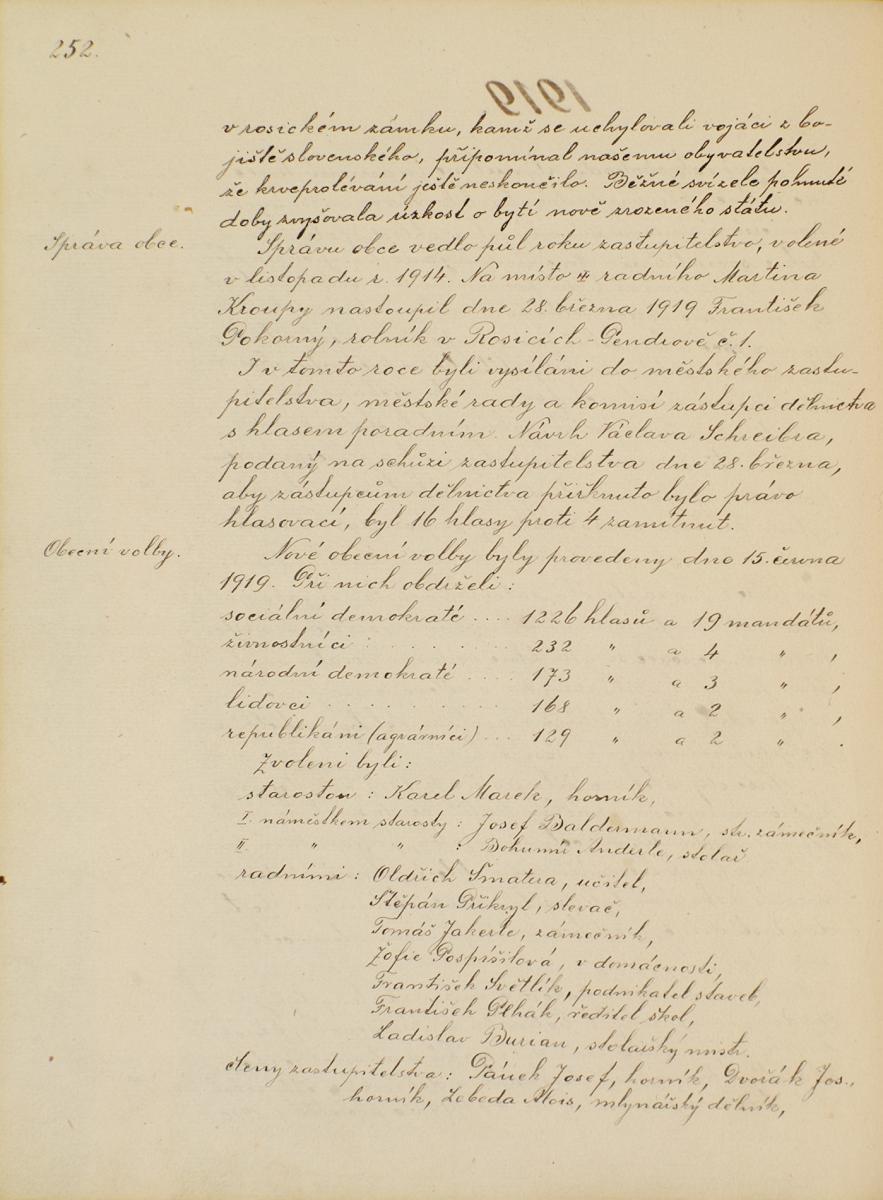 252.
1919
v rosickém zámku, kamž se uchylovali vojáci z bo-
jiště slovenského, připomínal našemu obyvatelstvu,
že krveprolévání ještě neskončilo. Běžné svízele pohnuté
doby zvyšovala úzkost o bytí nově zrozeného státu.
Správa obce.
Správu obce vedlo půl roku zastupitelstvo, volené
v listopadu r. 1914. Na místo radního Martina
Kroupy nastoupil dne 28. března 1919 František
Pokorný, rolník v Rosicích - Pendrově č. 1.
I v tomto roce byli vysíláni do městského zastu-
pitelstva, městské rady a komisí zástupci dělnictva
s hlasem poradním. Návrh Václava Schreibra,
podaný na schůzi zastupitelstva dne 28. března,
aby zástupcům dělnictva přiřknuto bylo právo
hlasovací, byl 16 hlasy proti 4 zamítnut.
Obecní volby.
Nové obecní volby byly provedeny dne 15. června
1919. Při nich obdrželi:
sociální demokraté .... 1226 hlasů a 19 mandátů,
živnostníci . . . . . . . 232 " a 4 " ,
národní demokraté .... 173 " a 3 " ,
lidovci . . . . . . . . . 168 " a 2 " ,
republikáni (agrárníci) ... 129 " a 2 " .
Zvoleni byli:
starostou : Karel Marek, horník,
I. náměstkem starosty : Josef Baldermann, str. zámečník,
II. " " : Bohumil Anderle, stolař
radními : Oldřich Šmatera, učitel,
Štěpán Přikryl, slevač,
Tomáš Jakerle, zámečník,
Žofie Pospíšilová, v domácnosti,
František Světlík, podnikatel staveb,
František Plhák, ředitel škol,
Ladislav Burian, stolařský mistr.
členy zastupitelstva : Pánek Josef, horník, Dvořák Jos.,
horník, Lebeda Alois, mlynářský dělník,